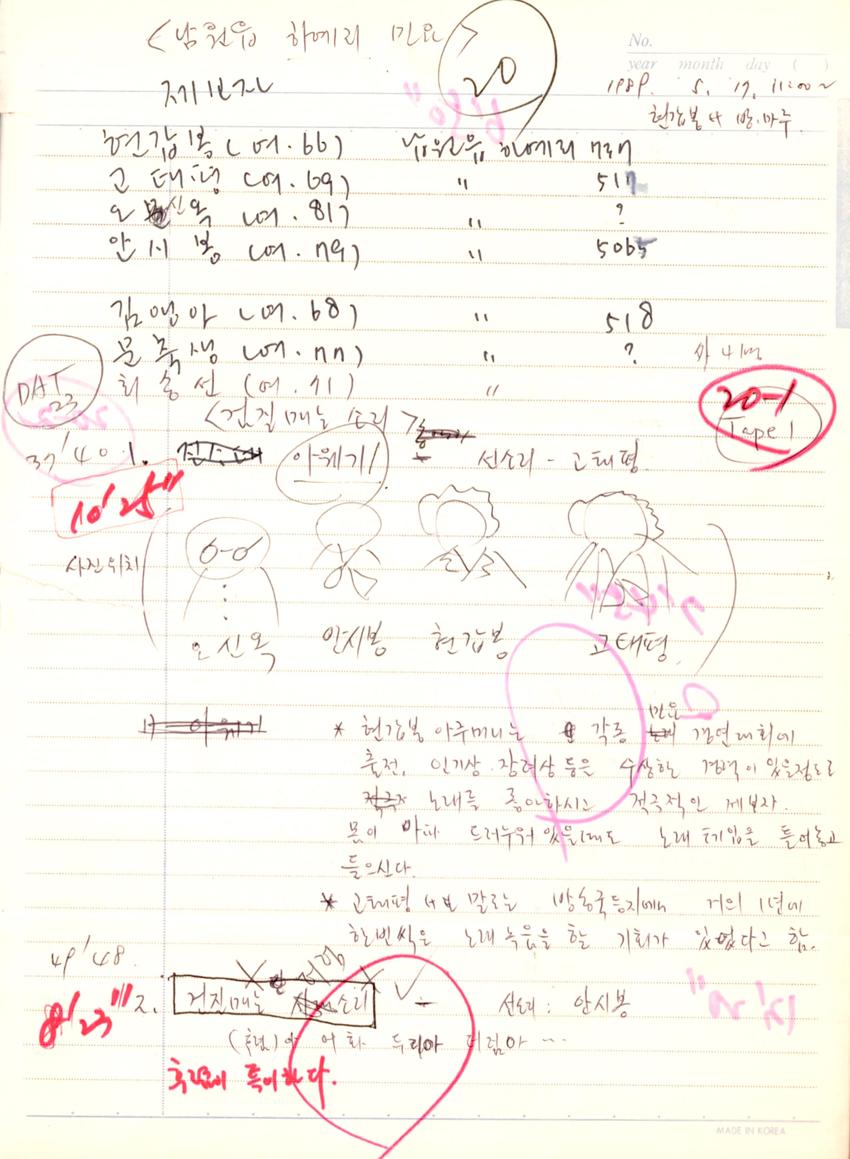 <남원읍 하예리 민요>
20
No.
year month day ( )
제보자
1989. 5. 17. 11:00~
현갑봉 댁
현갑봉 (여. 66) 남원읍 하예리
고태평 (여. 69) " 517
오신옥 (여. 81) " ?
안시봉 (여. 79) " 5065
김앵아 (여. 68) " 518
문축생 (여. 77) " ?
최송선 (여. 71) "
DAT 23
20-1
Tape 1
<검질매는 소리>
37'40 1. 아웨기 선소리 - 고태평.
10'25"
사진위치
오신옥 안시봉 현갑봉 고태평
* 현갑봉 아주머니는 각종 민요 경연대회에
출전, 인기상. 장려상 등을 수상한 경력이 있을정도로
노래를 좋아하시는 적극적인 제보자.
몸이 아파 드러누워 있을때도 노래 테입을 틀어놓고
들으신다.
* 고태평 말로는 방송국등지에서 거의 1년에
한번씩은 노래녹음을 할 기회가 있었다고 함.
49'48
8'23" 2. 검질매는 소리 선소리: 안시봉
(후렴) 어화 두리아 더럼아 ...
후렴이 특이하다.
MADE IN KOREA